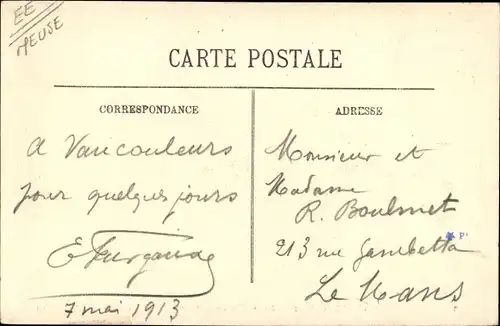 EE
MEUSE
CARTE POSTALE
CORRESPONDANCE
a Vaucouleurs
pour quelques jours
7 mai 1913
ADRESSE
Monsieur et
Madame
R. Boulmet
213 rue Gambetta
Le Mans